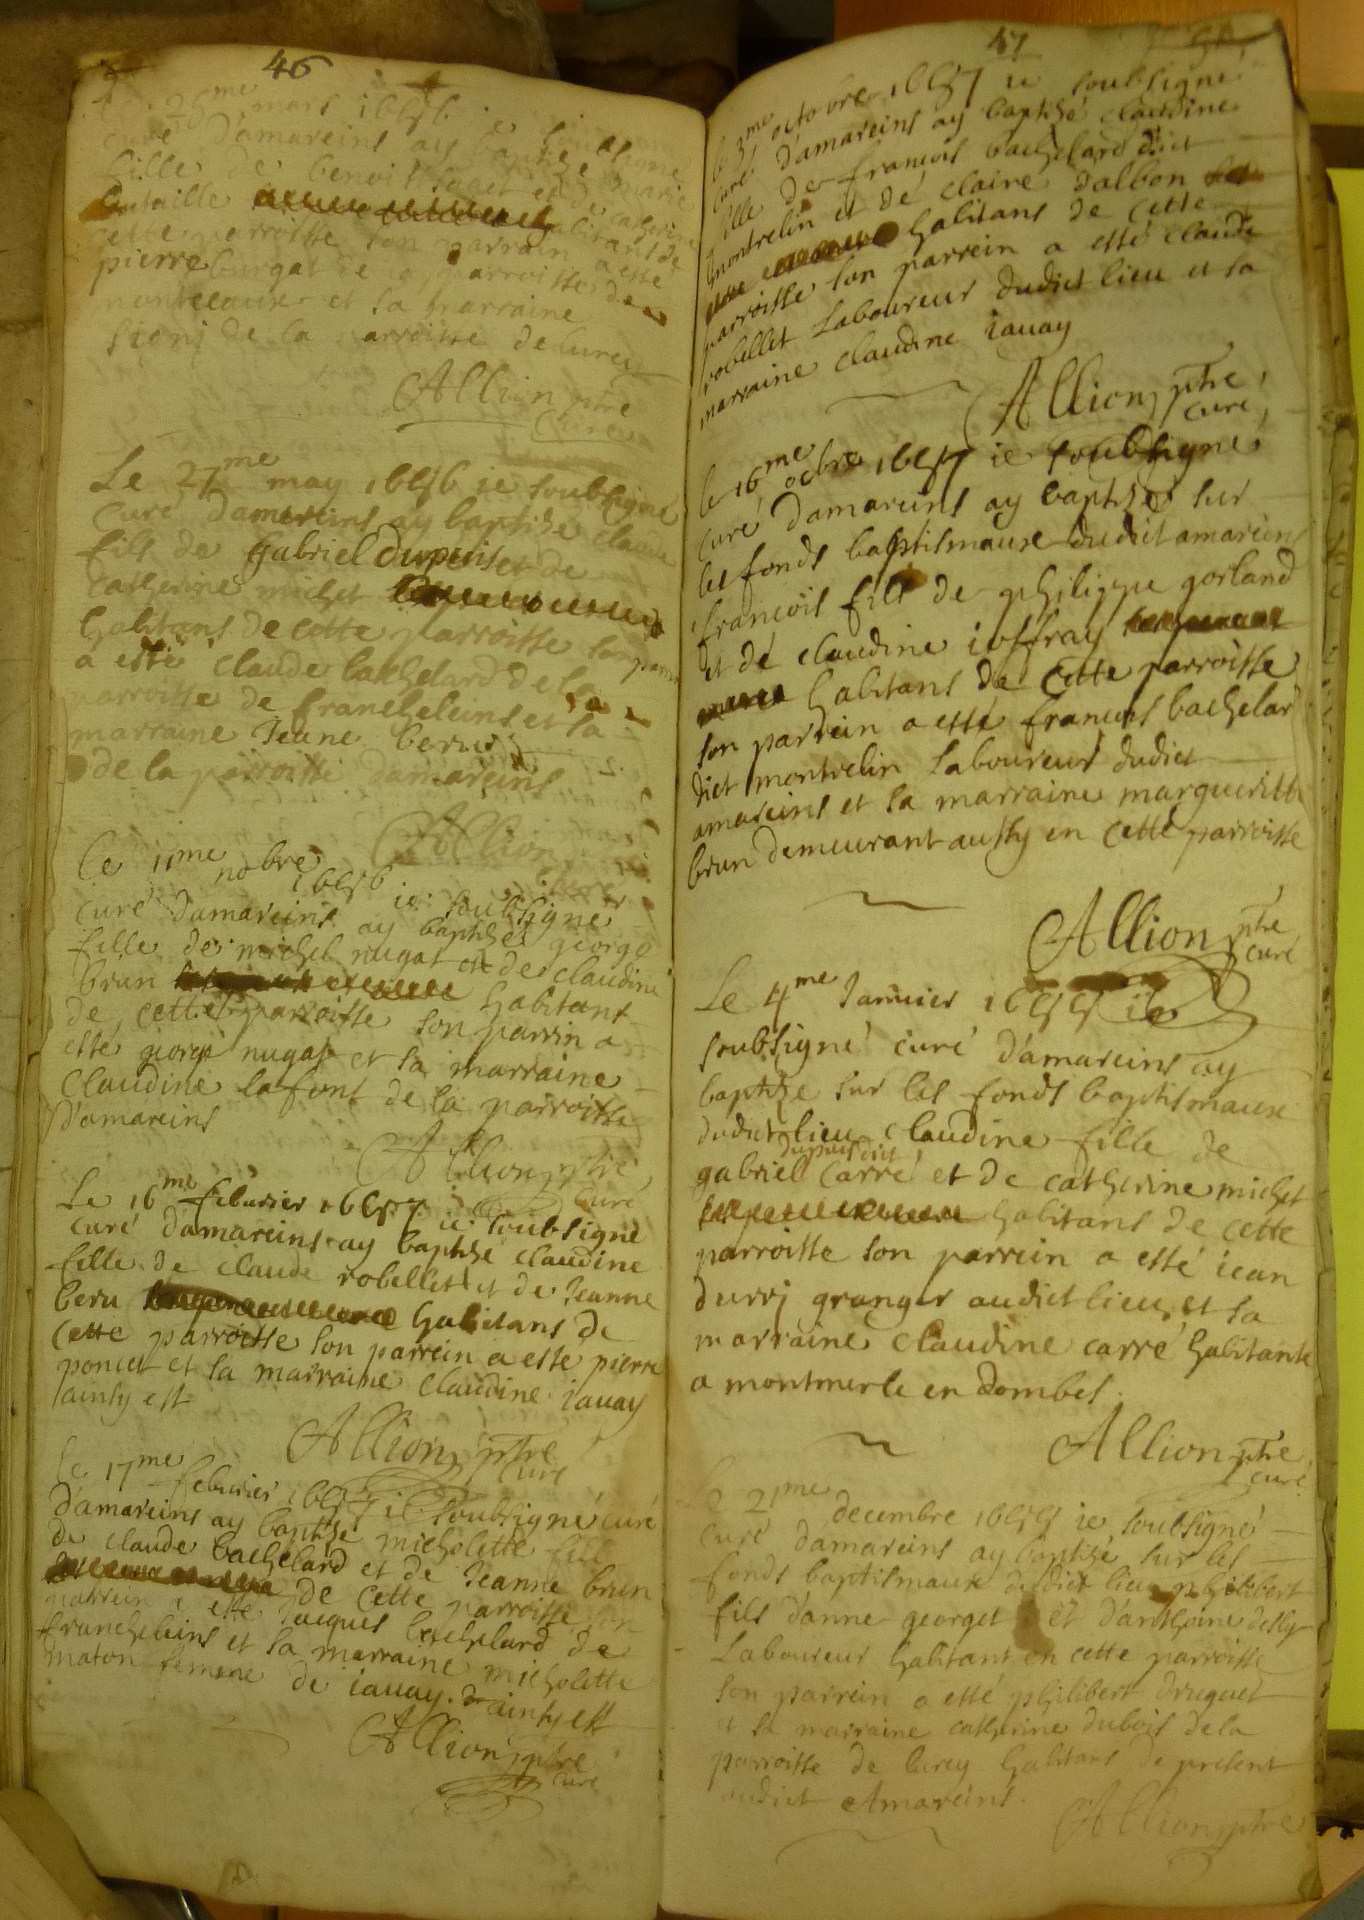 46
mars 1656
curé d'amareins ay baptizé
fille benoit et de catherine
bataille habitans de
cette parroisse son parrain a esté
pierre burgat de la parroisse de
et sa marraine
de la parroisse de lurcy
Allion ptre
curé
Le 27me may 1656 ie soubsigné
curé damareins ay baptize claude
fils de gabriel Dupuis et de
catherine michet
habitans de cette parroisse son parrin
a esté claude bachelard de la
parroisse de francheleins et sa
marraine Jeane beru
de la parroisse damareins
Allion
curé
Ce 11me nobre
1656 ie soubsigné
curé d'amareins ay baptize george
fille de michel nugat et de claudine
brun habitans
de cette parroisse son parrin a
esté george nugat et sa marraine
Claudine lafont de la parroisse
d'amareins
Allion ptre
curé
Le 16me feburier 1657 ie soubsigné
curé d'amareins ay baptizé claudine
fille de claude robellet et de Jeanne
beru habitans de
cette parroisse son parrein a esté pierre
poncet et sa marraine Claudine iauay
ainsy est
Allion ptre
curé
Le 17me feburier 1657 ie soubsigné curé
d'amareins ay baptize micholette fille
de claude bachelard et de Jeanne brun
de cette parroisse son
parrein a esté Jacques bachelard de
francheleins et sa marraine micholette
maton femme de iauay. ainsy est
Allion ptre
curé
47
le 3me octobre 1657 ie soubsigné
curé d'amareins ay baptizé claudine
fille de francois bachelard dict
montrelin et de claire dalbon
habitans de cette
parroisse son parrein a esté claude
robellet Laboureur dudict lieu et sa
marraine claudine iauay
Allion ptre
curé
le 16me ocbre 1657 ie soubsigné
curé damareins ay baptizé sur
les fonds baptismaux dudict amareins
francois fils de philippe gorland
et de claudine ioffray
habitans de cette parroisse
son parrein a esté francois bachelar
dict montrelin laboureur dudict
amareins et sa marraine margueritte
brun demeurant aussy en cette parroisse
Allion ptre
curé
Le 4me Januier 1655 ie
soubsigné curé d'amareins ay
baptize sur les fonds baptismaux
dudict lieu claudine fille de
dupuis dict
gabriel carré et de catherine michet
habitans de cette
parroisse son parrein a esté iean
durrj granger audict lieu et sa
marraine claudine carré habitante
a montmerle en Dombes.
Allion ptre
curé
Le 21me decembre 1655 ie soubsigné
curé damareins ay baptizé sur les
fonds baptismaux dudict lieu philibert
fils d'anne georget et d'anthoine
Laboureur habitant en cette parroisse
son parrein a esté philibert druguet
et sa marraine catherine dubois de la
parroisse de lurcy habitans de present
audict Amareins.
Allion ptre